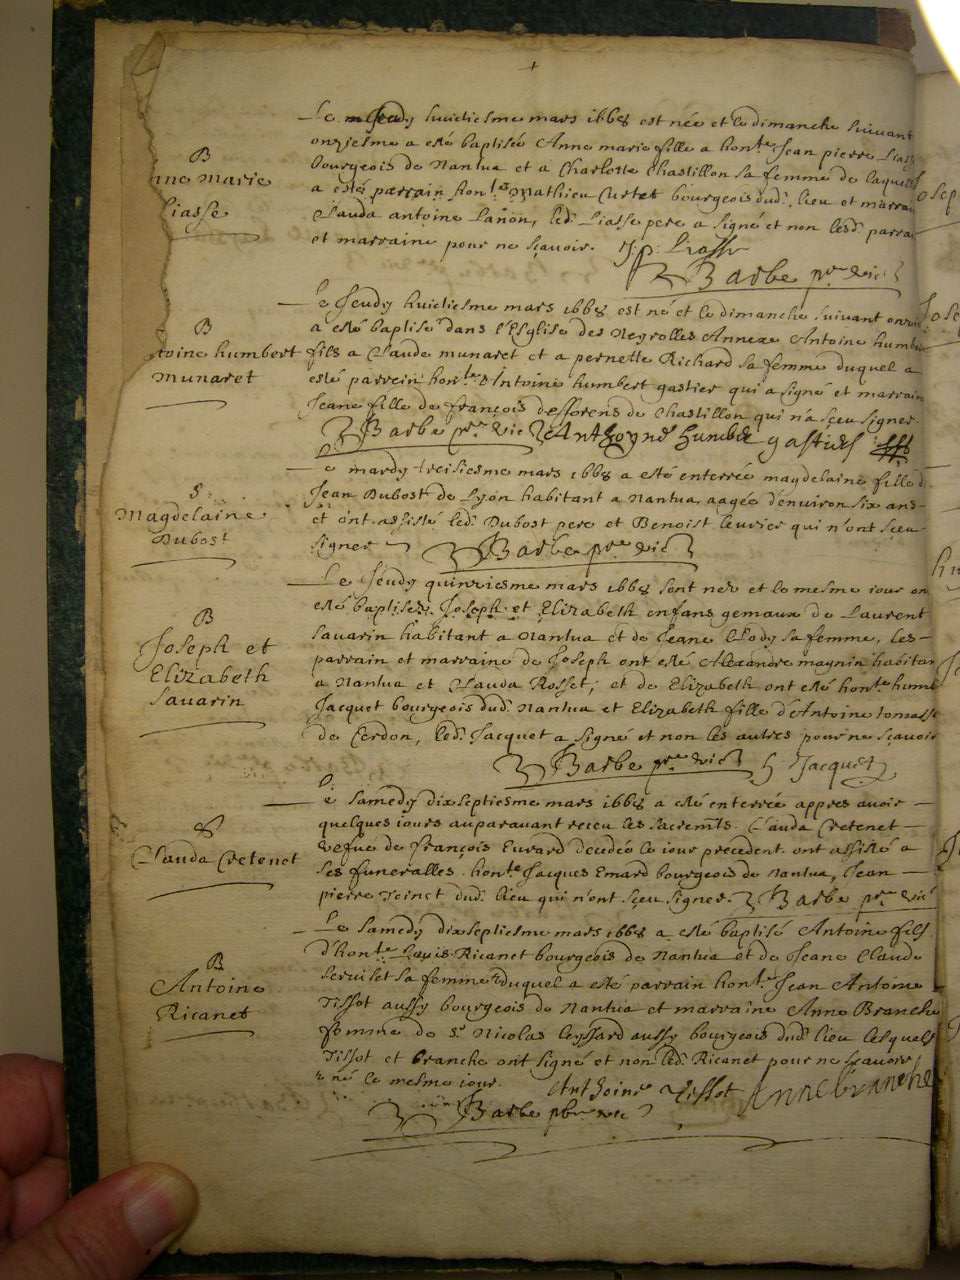 B
nne Marie
Liasse
Le Jeudy huictiesme mars 1668 est née et le dimanche suivant
onziesme a esté baptisée Anne marie fille a hon.te Jean pierre Liasse
bourgeois de Nantua et a Charlotte Chastillon sa femme de laquelle
a esté parrain hon.te Mathieu Curtet bourgeois dud. lieu et marrai
Clauda antoine Lanon, led. Liasse pere a signé et non lesd. parra
et marraine pour ne sçavoir. J. p. Liasse
Barbe pre vic
B
toine humbert
Munaret
Le Jeudy huictiesme mars 1668 est né et le dimanche suivant onzie
a esté baptisé dans l'Esglise des Neyrolles Annexe Antoine humbe
fils a Claude munaret et a pernette Richard sa femme duquel a
esté parrein hon.te Antoine humbert gastier qui a signé et marrain
Jeane fille de françois desforens de Chastillon qui n'a sçeu signer
Barbe pre vic Anthoyne humbert gastier
S
Magdelaine
Dubost
Le mardy treisiesme mars 1668 a esté enterrée magdelaine fille d
Jean Dubost de Lyon habitant a Nantua aagée d'environ six ans
et ont assisté led. Dubost pere et Benoist leurier qui n'ont sçeu
signer Barbe pre vic
B
Joseph et
Elizabeth
Sauarin
Le Jeudy quinziesme mars 1668 sont nez et le mesme iour on
esté baptisez Joseph et Elizabeth enfans gemaux de Laurent
Sauarin habitant a Nantua et de Jeane sa femme, les
parrain et marraine de Joseph ont esté Alexandre maynin habitan
a Nantua et Clauda Rosset, et de Elizabeth ont esté hon.te humb
Jacquet bourgeois dud. Nantua et Elizabeth fille d'Antoine tomasse
de Cerdon, led. Jacquet a signé et non les autres pour ne sçavoir
Barbe pre vic h Jacquet
S
Clauda Cretenet
Le Samedy dixseptiesme mars 1668 a esté enterrée appres avoir
quelques iours auparauant receu les sacremts. Clauda Cretenet
vefue de françois Eurard decedée le iour precedent. ont assisté a
ses funeralles hon.te Jacques Emard bourgeois de Nantua, Jean
pierre Teinet dud. lieu qui n'ont sçeu signer. Barbe pre vic
B
Antoine
Ricanet
Le Samedy dixseptiesme mars 1668 a esté baptisé Antoine fils
d'hon.te Louis Ricanet bourgeois de Nantua et de Jeane Claude
Seruilet sa femme duquel a esté parrain hon.te Jean Antoine
Tissot aussy bourgeois de Nantua et marraine Anne Branche
femme de Sr Nicolas Leyssard aussy bourgeois dud. lieu lesquels
Tissot et branche ont signé et non led. Ricanet pour ne sçavoir
né le mesme iour. Anthoine Tissot Anne branche
Barbe pbre vic